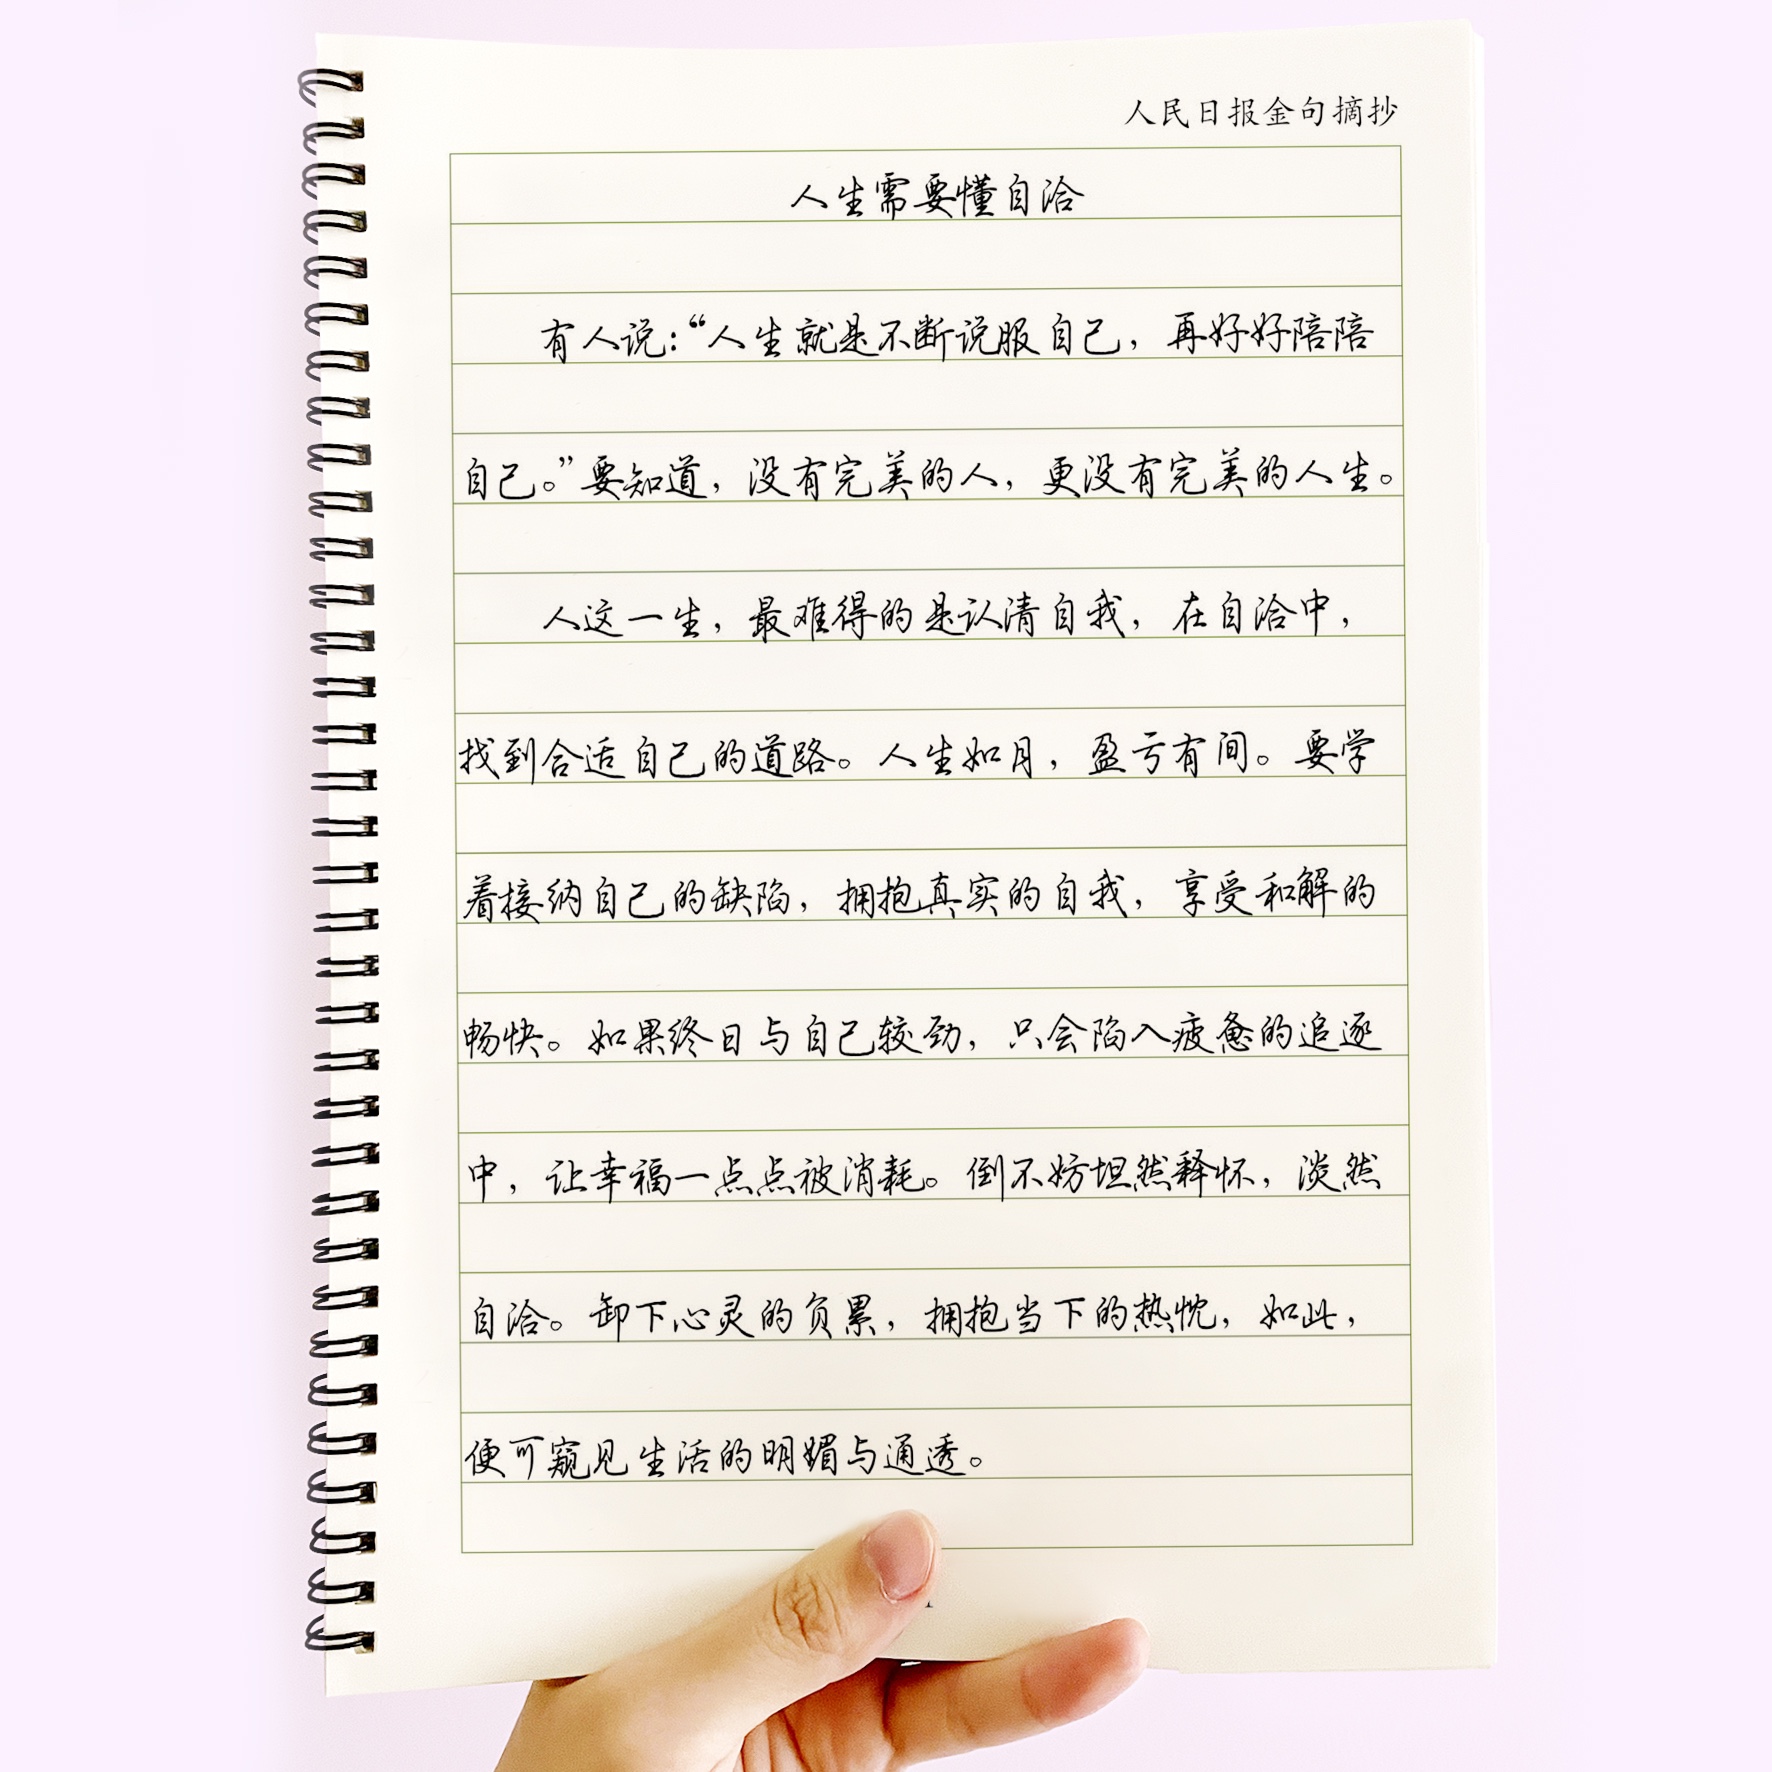 人民日报金句摘抄
人生需要懂自洽
有人说：“人生就是不断说服自己，再好好陪陪
自己。”要知道，没有完美的人，更没有完美的人生。
人这一生，最难得的是认清自我，在自洽中，
找到合适自己的道路。人生如月，盈亏有间。要学
着接纳自己的缺陷，拥抱真实的自我，享受和解的
畅快。如果终日与自己较劲，只会陷入疲惫的追逐
中，让幸福一点点被消耗。倒不妨坦然释怀，淡然
自洽。卸下心灵的负累，拥抱当下的热忱，如此，
便可窥见生活的明媚与通透。